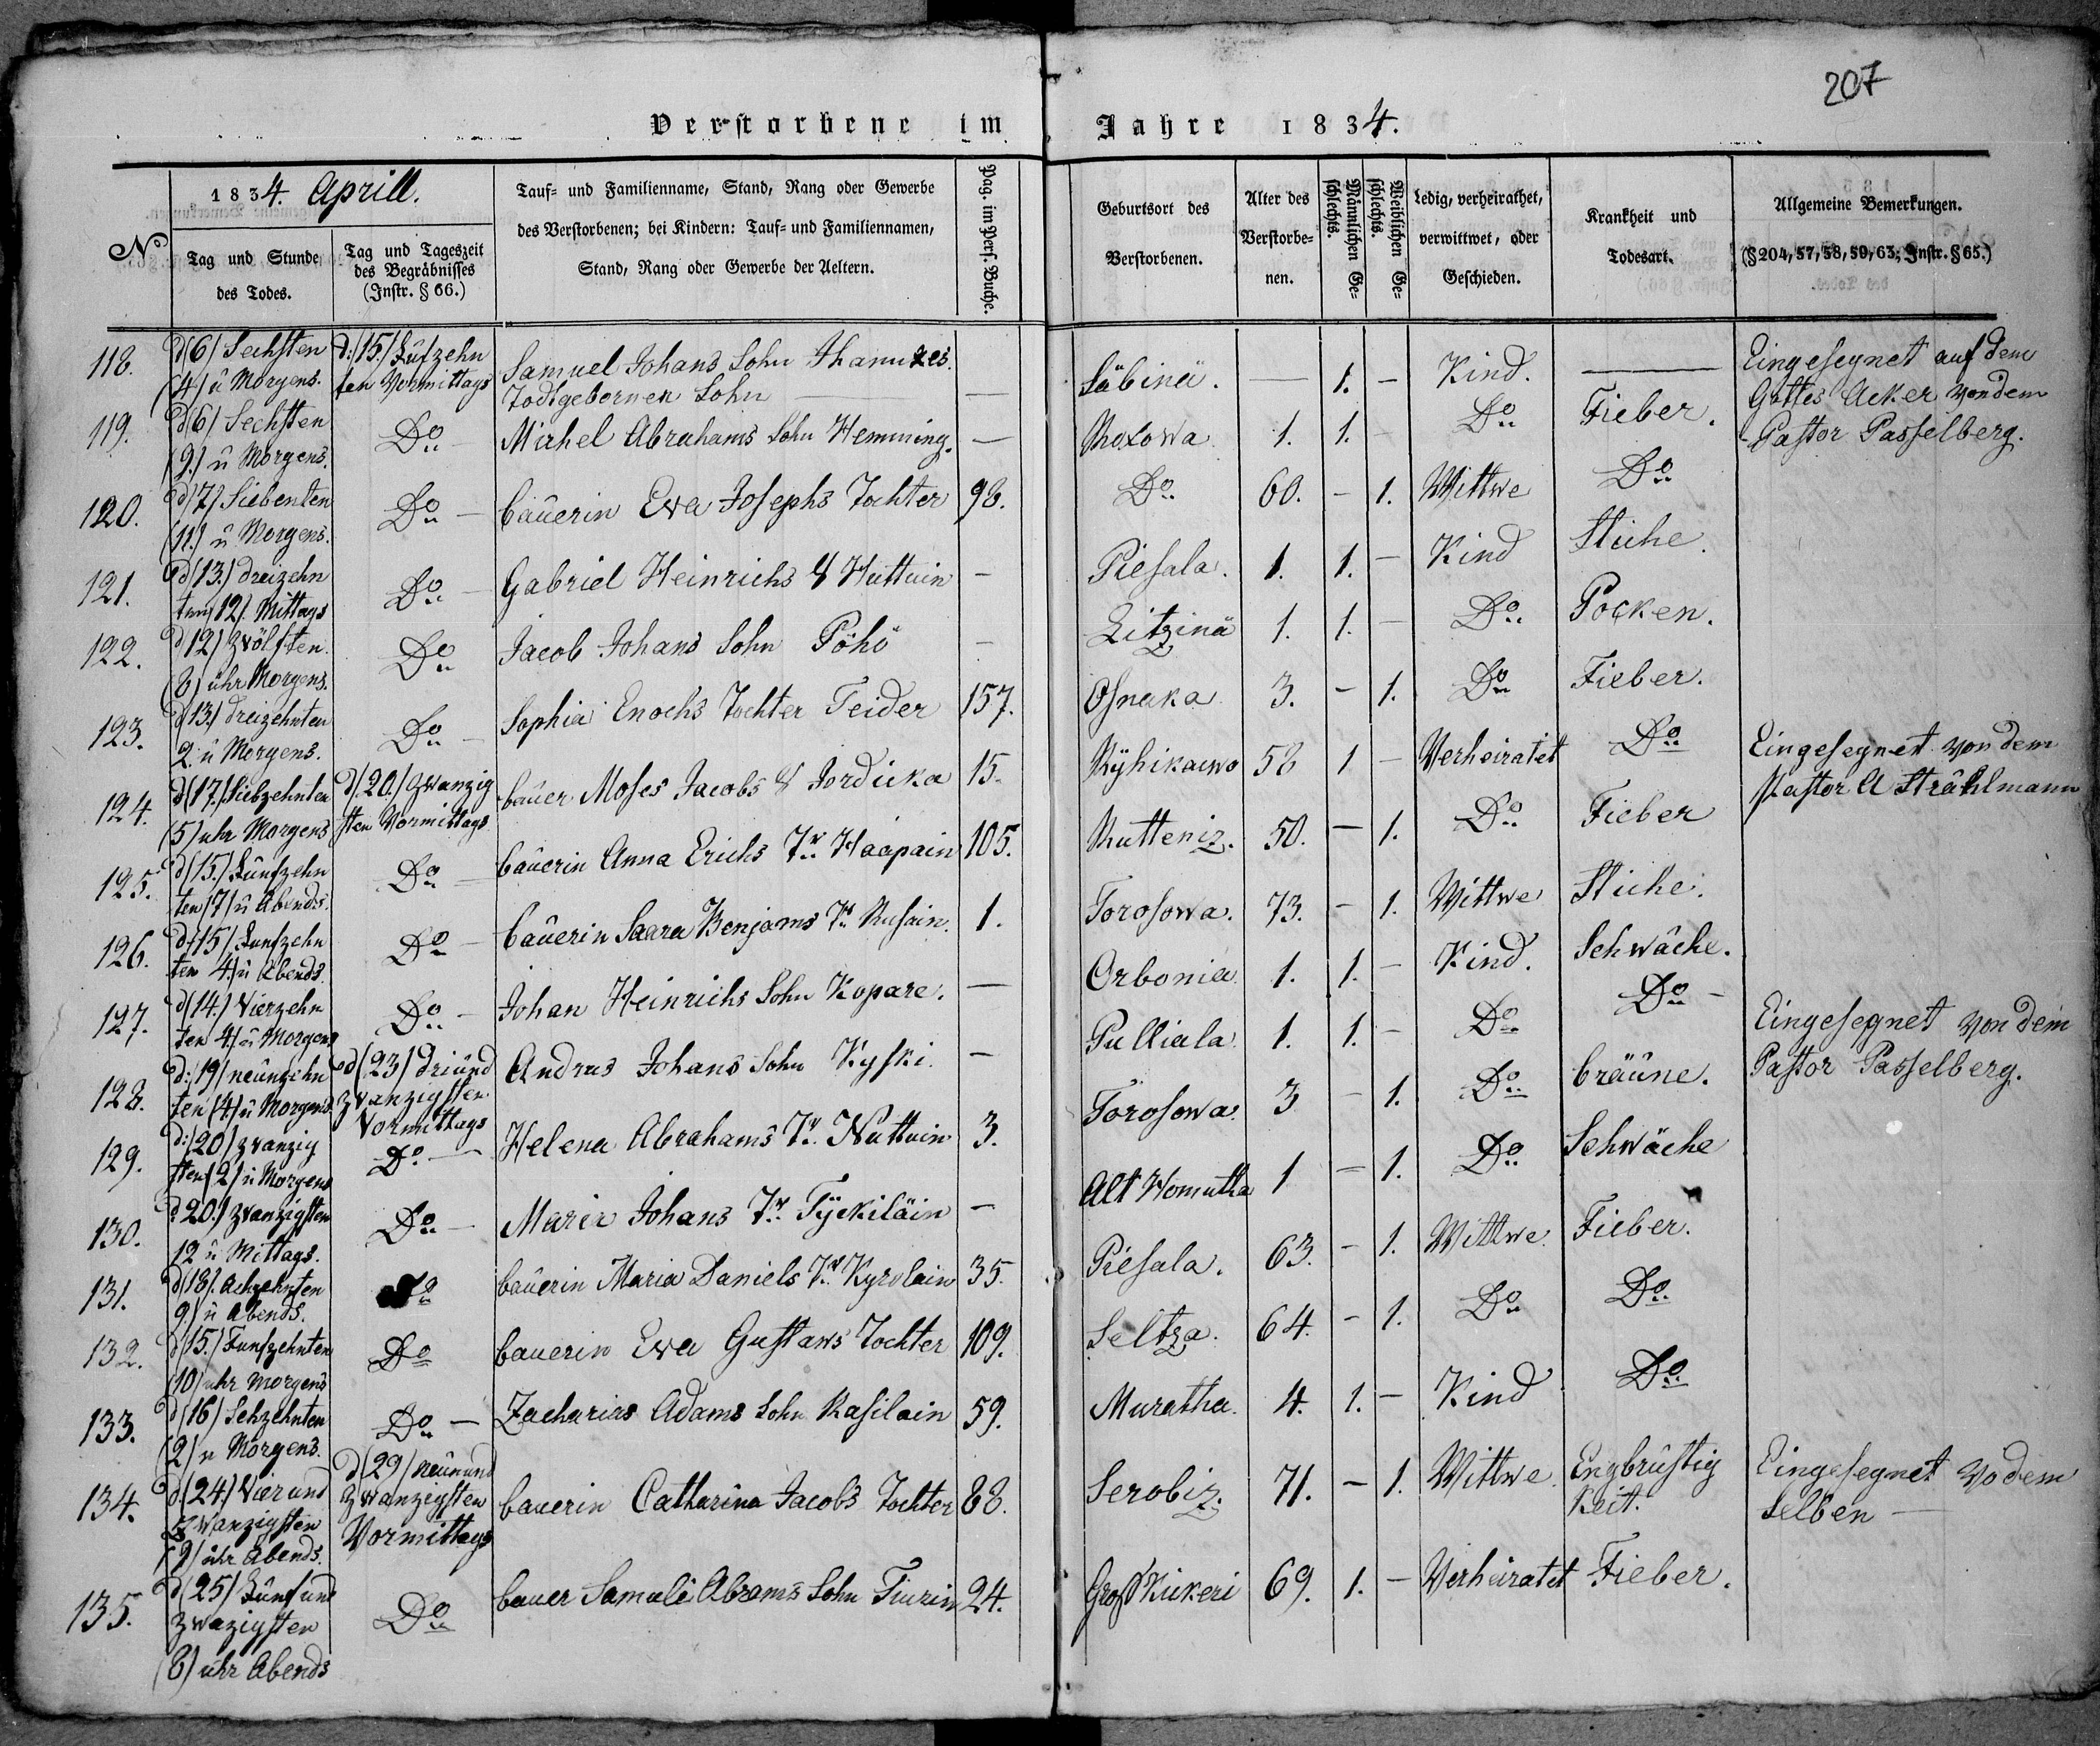 207
Verstorbene im Jahre 1834.
1834. Aprill.
No
Tag und Stunde
des Todes.
Tag und Tageszeit
des Begräbnisses
(Instr. § 66.)
Tauf= und Familienname, Stand, Rang oder Gewerbe
des Verstorbenen; bei Kindern: Tauf= und Familiennamen,
Stand, Rang oder Gewerbe der Aeltern.
Pag. im Pers. Buche.
Geburtsort des
Verstorbenen.
Alter des
Verstorbe=
nen.
Männlichen Ge=
schlechts.
Weiblichen Ge=
schlechts.
Ledig, verheirathet,
verwittwet, oder
Geschieden.
Krankheit und
Todesart.
Allgemeine Bemerkungen.
(§ 204, 57, 58, 59, 63; Instr. § 65.)
118. d (6) Sechsten d: (15.) Fûfzehn Samuel Johans Sohn
(4) û Morgens. ten Vormittags Todtgebornen Sohn — — Säbinä. — 1. — Kind. — Eingesegnet auf dem
Gottes Acker von dem
Pastor Passelberg.
119. d (6) Sechsten
(9.) û Morgens. Do Michel Abrahams Sohn Hemming. — 1. 1. — Do Fieber.
120. d (7) Siebenten
(11.) û Morgens. Do — bäuerin Ewa Josephs Tochter 98. Do 60. — 1. Wittwe Do
121. d (13.) dreizehn
ten 12. Mittags Do — Gabriel Heinrichs S Huttuin — Piesala. 1. 1. — Kind Stiche.
122. d 12) Zwölften.
(6) ûhr Morgens. Do Jacob Johans Sohn Pöhö — Litzinä 1. 1. — Do Pocken.
123. d 13.) dreizehnten
2. û Morgens. Do — Sophia Enochs Tochter Teider 157. Osnaka 3. — 1. Do Fieber.
124. d (17.) Siebzehnten d (20.) Zwanzig
(5) uhr Morgens sten Vormittags bauer Moses Jacobs S Jordicka 15. Kÿhikaewo 58 1 — Verheiratet Do Eingesegnet von dem
Pastor A Strählmann
125. d (15.) Fûnfzehn
ten (7) û Abends. Do — bäuerin Anna Erichs Tr. Haapain 105. Rutteniz. 50. — 1. Do Fieber
126. d (15) Funfzehn
ten 4.) û Abends. Do — bäuerin Saara Benjams Tr. Rusain. 1. Torosowa. 73. — 1. Wittwe Stiche.
127. d (14.) Vierzehn
ten 4.) û Morgens Do — Johan Heinrichs Sohn Kopare. — Orbonia 1. 1. — Kind. Schwäche.
128. d: (19) neûnzehn d (23) driûnd
ten (4.) û Morgens zwanzigsten
Vormittags Andrus Johans Sohn Kyski. — Pulliala 1. 1. — Do Do — Eingesegnet von dem
Pastor Passelberg.
129. d: (20) zwanzig
sten (2) û Morgens Do — Helena Abrahams Tr. Nuttuin 3. Torosowa 3 — 1. Do bräûne.
130. d 20.) zwanzigsten
12 û Mittags. Do — Maria Johans Tr. Tÿckiläin — Alt Homutha 1 — 1. Do Schwäche
131. d (18). Achzehnten
9.) û Abends. Do bäuerin Maria Daniels Tr. Kyrolain 35. Piesala. 63. — 1. Wittwe. Fieber.
132. d (15.) Funfzehnten
(10) uhr Morgens Do bauerin Ewa Gustaws Tochter 109. Seltza. 64. — 1. Do Do
133. d (16) Sehzehnten
(2) u Morgens. Do — Zacharias Adams Sohn Rasilain 59. Muratha. 4. 1. — Kind Do
134. d. (24.) Vierund d (29) neûnund
Zwanzigsten zwanzigsten
(9) ûhr Abends. Vormittags bauerin Catharina Jacobs Tochter 88. Serobiz. 71. — 1. Wittwe Engbrûstig
Keit. Eingesegnet vo dem
selben —
135. d (25) Fûnfund
Zwazigsten
(6) uhr Abends Do bauer Samuli Abrams Sohn Tiurin 24. Groß Kikeri 69. 1. — Verheiratet Fieber.